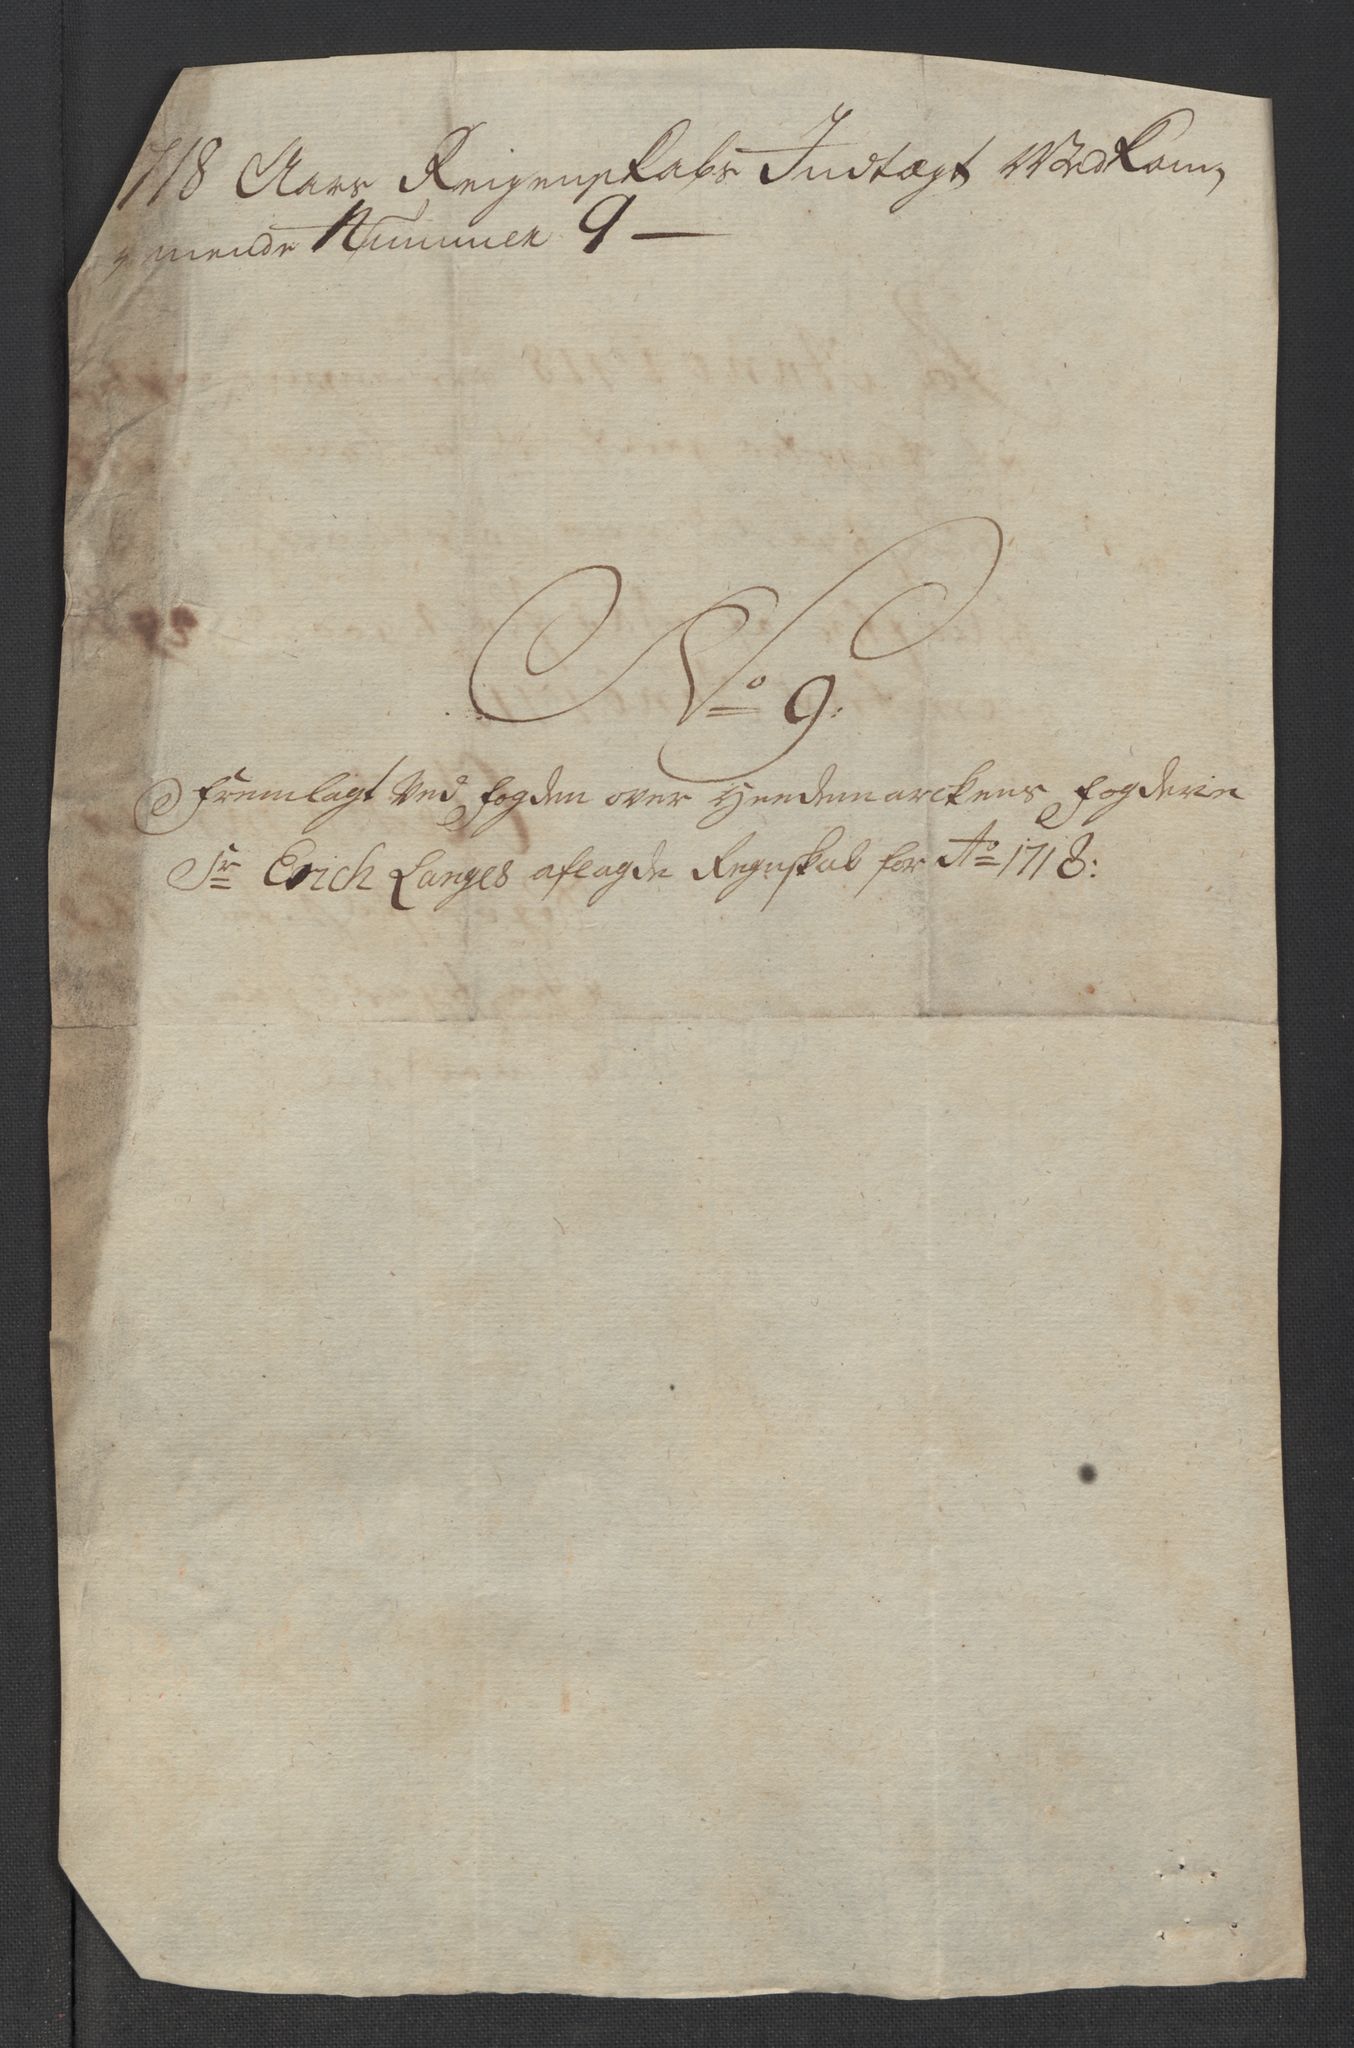 718 Aars Reigenskabs Indtægt Vedkom,
mende Nummer 9 —
No 9:
Fremlagt Ved fogden over Heedemarckens fogderie
Sr Erich Langes aflagde Regnskab for Ao 1718: